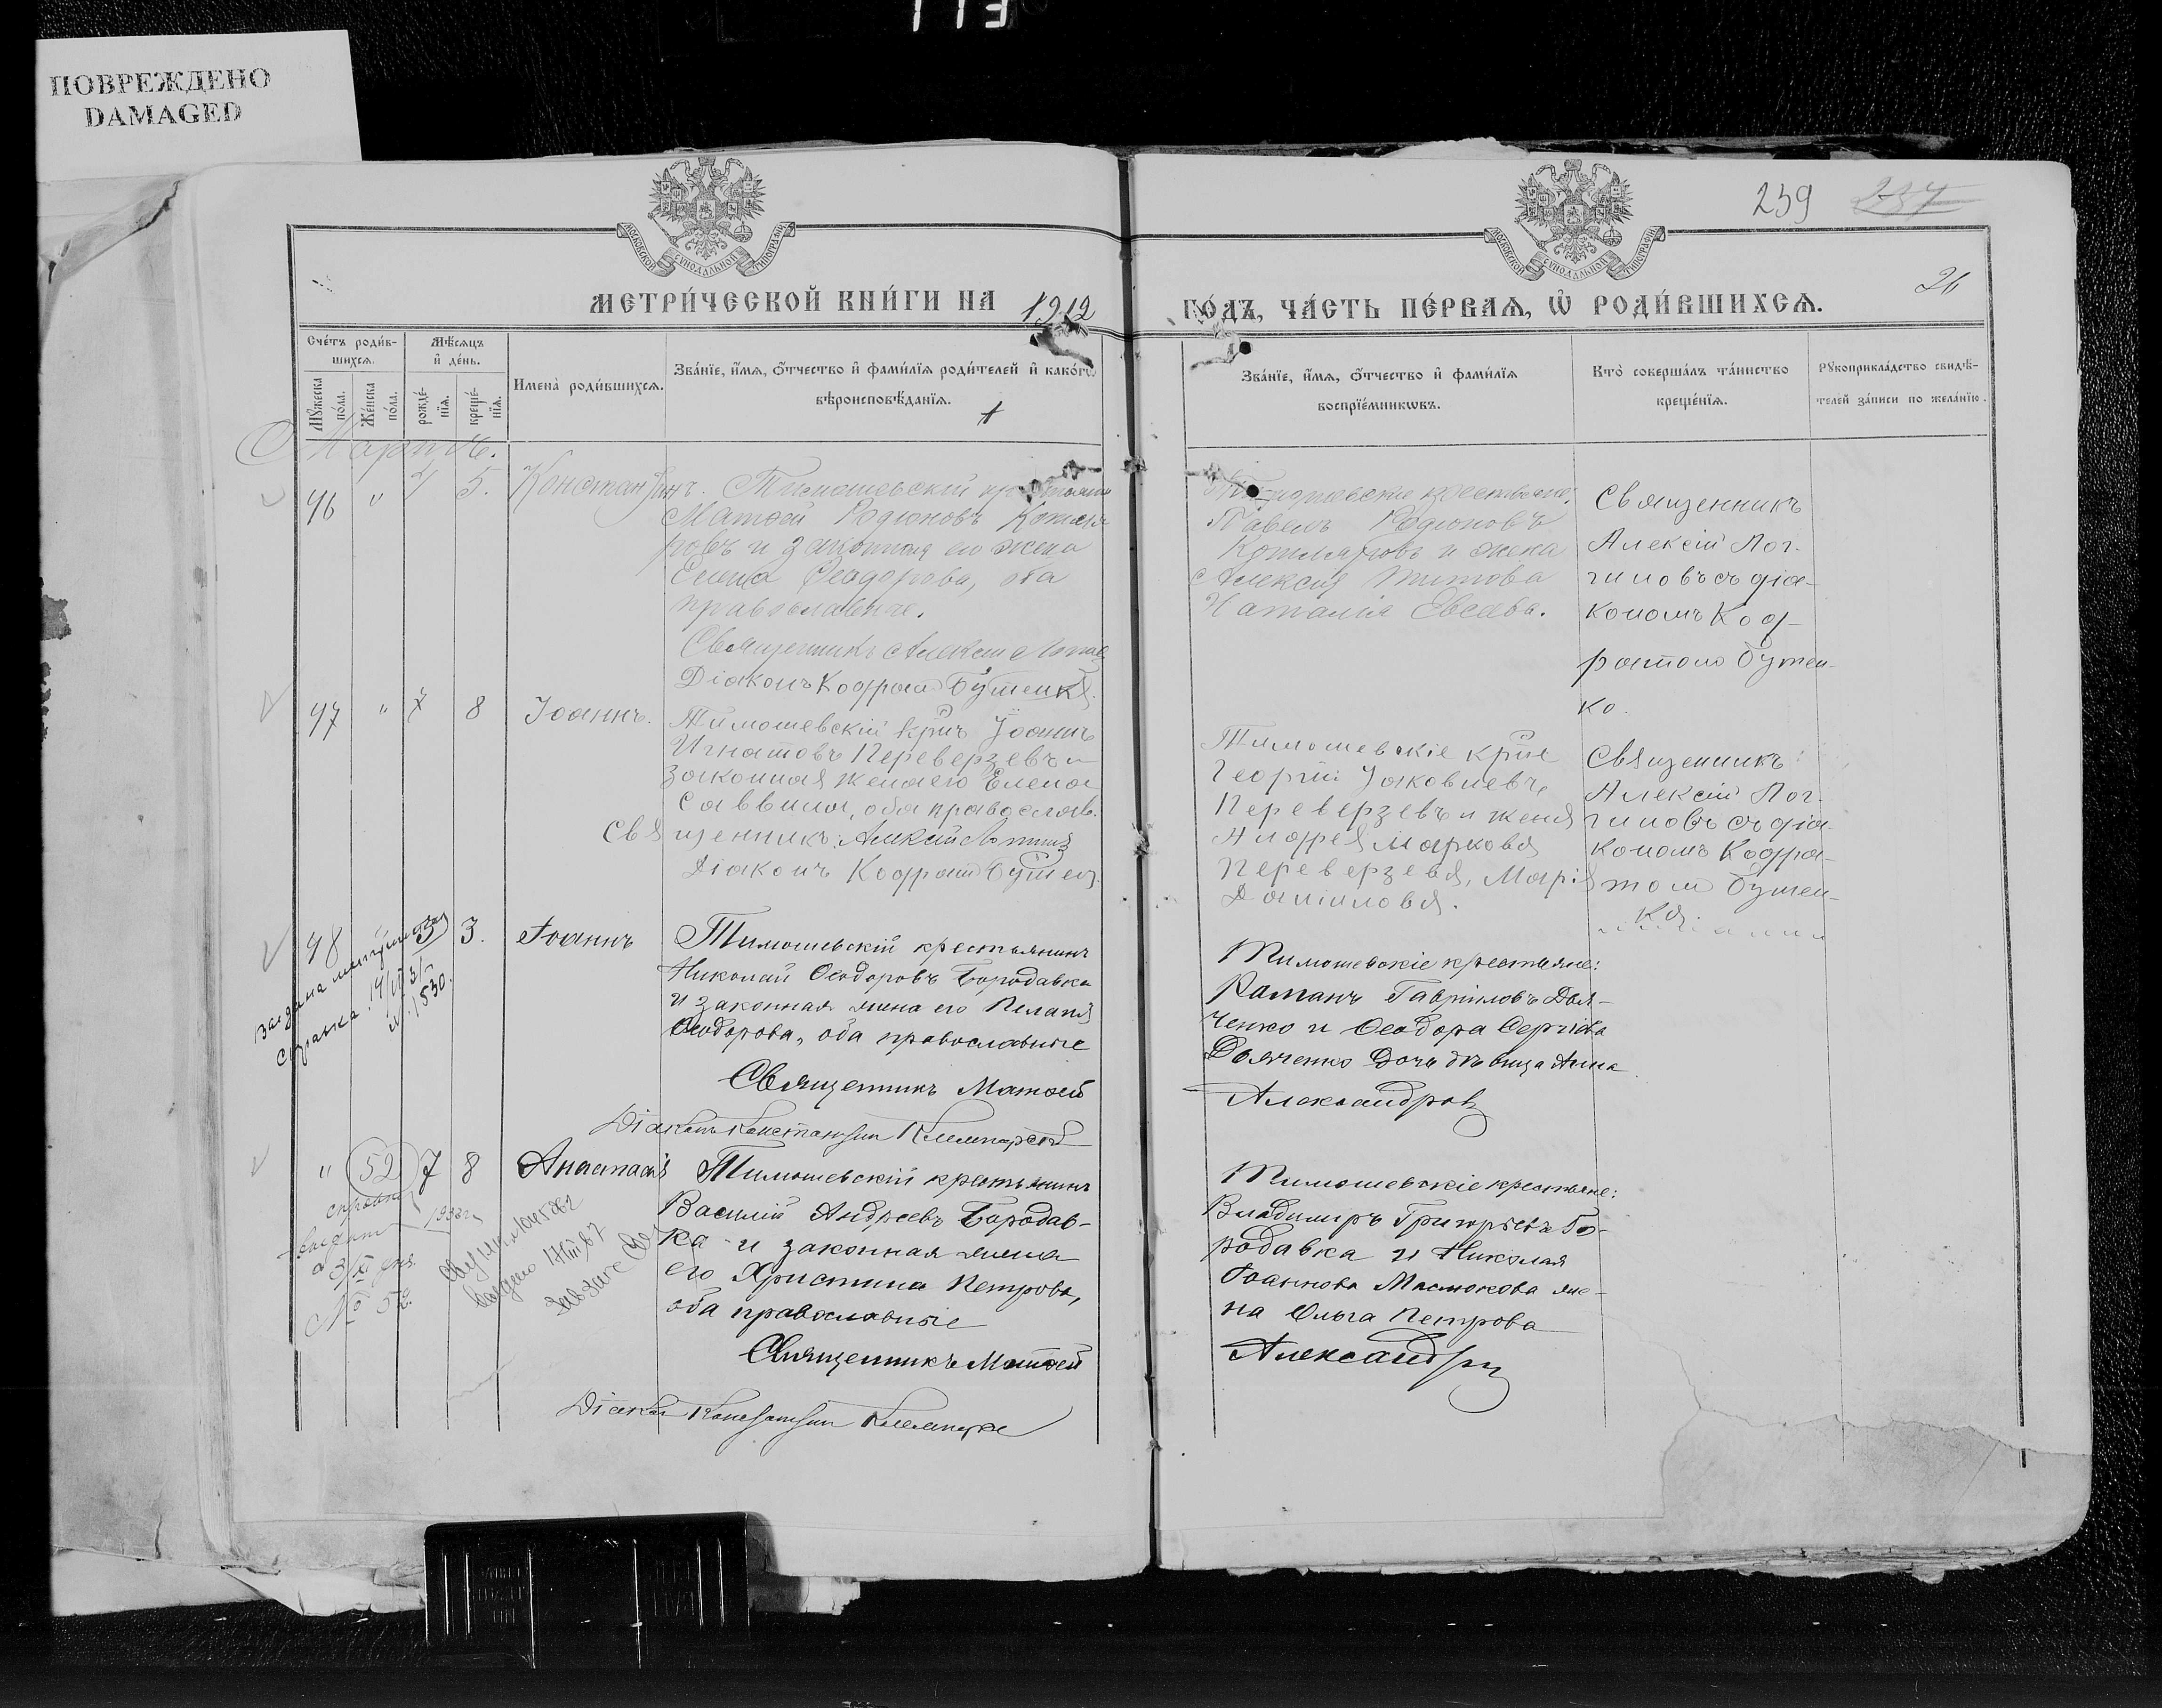 113
ПОВРЕЖДЕНО
DAMAGED
239 237
26
МОСКОВСКОЙ СѴНОДАЛЬНОЙ ТИПОГРАФІИ
МОСКОВСКОЙ СѴНОДАЛЬНОЙ ТИПОГРАФІИ
МЕТРИ́ЧЕСКОЙ КНИ́ГИ НА 1912 ГО́ДЪ, ЧА́СТЬ ПЕ́РВАѦ, Ѡ҆ РОДИ́ВШИХСѦ.
Сче́тъ роди́в-
шихсѧ.
Мꙋ́жеска
по́ла.
Же́нска
по́ла.
Мѣ́сѧцъ
и҆ де́нь.
рожде́-
нїѧ.
креще́-
нїѧ.
Имена̀ роди́вшихсѧ.
Зва́нїе, и҆́мѧ, ѻ҆́тчество и҆ фами́лїѧ роди́телей и҆ како́гѡ
вѣроисповѣ́данїѧ.
Зва́нїе, и҆́мѧ, ѻ҆́тчество и҆ фами́лїѧ
воспрїе́мникѡвъ.
Кто̀ соверша́лъ та́инство
креще́нїѧ.
Рꙋкоприкла́дство свидѣ́-
телей за́писи по жела́нїю.
Мартъ.
46 " 4 5. Константинъ. Тимошевскій
Матѳей Родіоновъ Котля
ровъ и законная его жена
Елена Ѳеодорова, оба
православные.
Священникъ Алексій
Діаконъ Кодратъ Бутенко.
крестьяне,
Павелъ Родіоновъ
Котляровъ и жена
Алексія Титова
Наталія Евсева.
Священникъ
Алексій Лог-
гиновъ съ діа-
кономъ Код-
ратомъ Бутен-
ко.
47 " 7 8 Іоаннъ. Тимошевскій кр-нъ Іоаннъ
Игнатовъ Переверзевъ и
законная жена его Елена
Саввина, оба православ.
Священникъ Алексій
Діаконъ Кодратъ
Тимошевскіе кр-не
Георгій Іаковлевъ
Переверзевъ и жена
Андрея Маркова
Переверзева, Марія
Даніилова.
Священникъ
Алексій Лог-
гиновъ съ діа-
кономъ Кодра-
томъ Бутен-
ко.
48 3 3. Іоаннъ Тимошевскій крестьянинъ
Николай Ѳеодоровъ Бородавка
и законная жена его Пелагія
Ѳеодорова, оба православные
Священникъ Матѳей
Діаконъ Константинъ
Выдана
справка 14/VI 31 г.
№ 1530.
Тимошевскіе крестьяне:
Романъ Гавріиловъ Дья-
ченко и Ѳеодора Сергіева
Дьяченко дочь дѣвица Анна
Александровъ
" 52 7 8 Анастасія Тимошевскій крестьянинъ
Василій Андреевъ Бородав-
ка и законная жена
его Христина Петрова,
оба православные
Священникъ Матѳей
Діаконъ Константинъ
справка
Тимошевскіе крестьяне:
Владимиръ Григорьевъ Бо-
родавка и Николая
Іоаннова Маслюкова же-
на Ольга Петрова
Александровъ